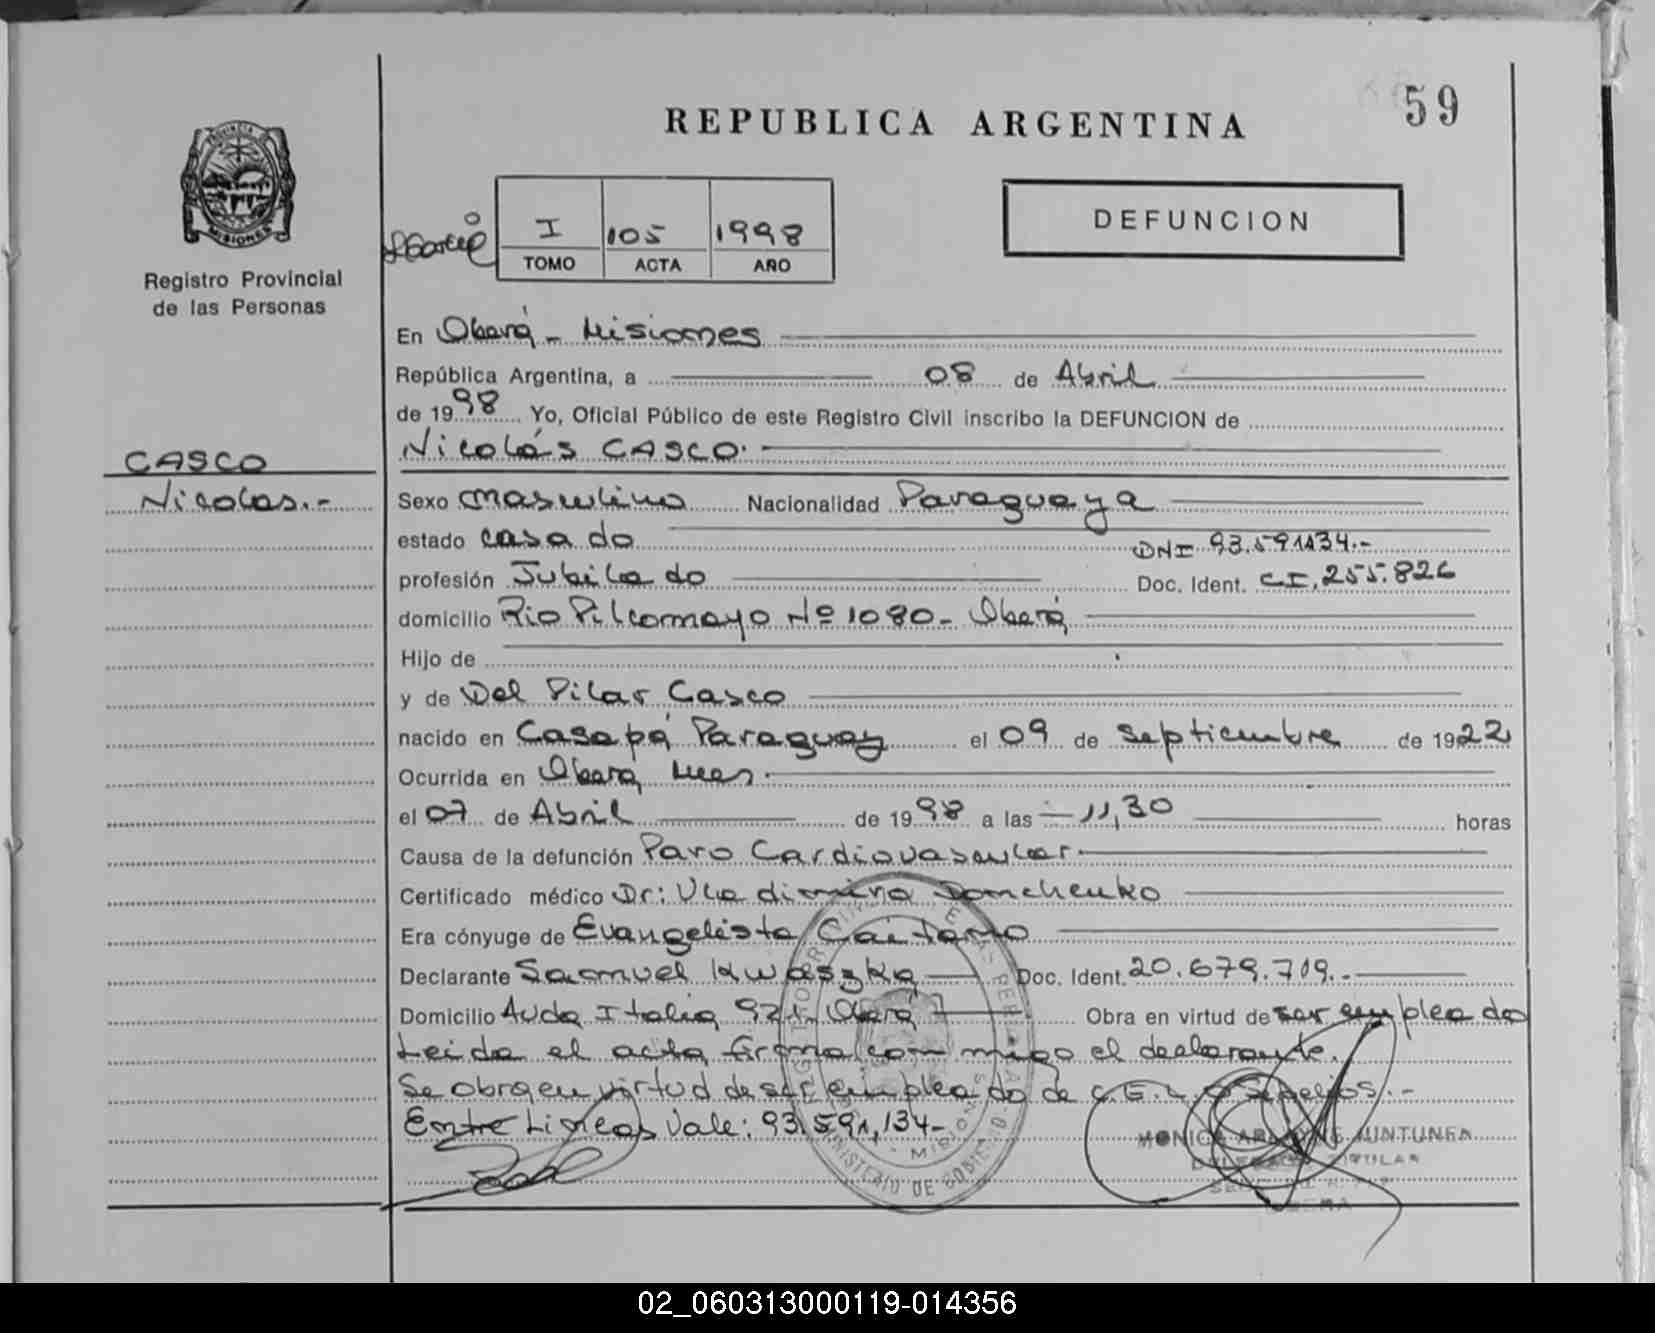 59
REPUBLICA ARGENTINA
DEFUNCION
I 105 1998
TOMO ACTA AÑO
PROVINCIA DE
MISIONES
Registro Provincial
de las Personas
CASCO
Nicolas.-
En Oberá - Misiones
República Argentina, a 08 de Abril
de 1998 Yo, Oficial Público de este Registro Civil inscribo la DEFUNCION de
Nicolás CASCO.
Sexo masculino Nacionalidad Paraguaya
estado casado DNI 93.591.134.-
profesión Jubilado Doc. Ident. C.I. 255.826
domicilio Rio Pilcomayo Nº 1080 - Oberá
Hijo de
y de Del Pilar Casco
nacido en Casapá Paraguay el 09 de Septiembre de 1922
Ocurrida en Oberá Mnes.
el 07 de Abril de 1998 a las - 11,30 horas
Causa de la defunción Paro Cardiovascular.
Certificado médico Dr: Vladimiro Domchenko
Era cónyuge de Evangelista Caitano
Declarante Samuel Kwaszka Doc. Ident. 20.679.719.-
Domicilio Avda Italia 921- Oberá Obra en virtud de ser empleado
Leida el acta firma con migo el declarante.
Se obra en virtud de ser empleado de C.E.L.O Sepelios.-
Entre Lineas Vale: 93.591,134-
MINISTERIO DE GOBIERNO
MISIONES
MONICA JUNTUNEN
DELEGADO TITULAR
OBERA
02_060313000119-014356